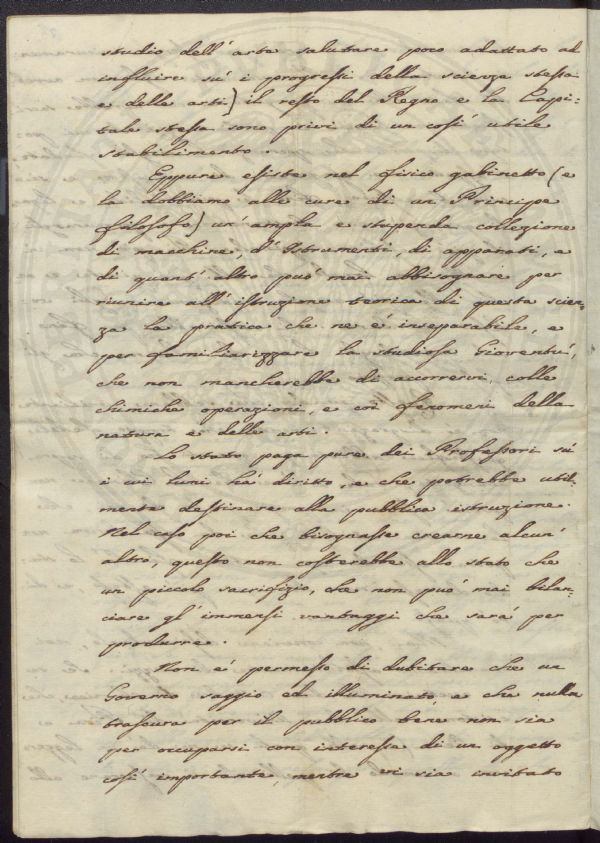 studio dell'arte salutare poco adattato ad
influire su' i progressi della scienza stessa
e delle arti) il resto del Regno e la Capi=
tale stessa sono privi di un così utile
stabilimento.
Eppure esiste nel fisico gabinetto (e
la dobbiamo alle cure di un Principe
filosofo) un'ampla e stupenda collezione
di macchine, d'Istrumenti, di apparati, e
di quant'altro può mai abbisognare per
riunire all'istruzione teorica di questa scien=
za la pratica che ne è inseparabile, e
per familiarizzare la studiosa Gioventù,
che non mancherebbe di accorrervi, colle
chimiche operazioni, e coi fenomeni della
natura e delle arti.
Lo stato paga pure dei Professori sù
i cui lumi hà diritto, e che potrebbe util=
mente destinare alla pubblica istruzione.
Nel caso poi che bisognasse crearne alcun'
altro, questo non costerebbe allo stato che
un piccolo sacrifizio, che non può mai bilan=
ciare gl'immensi vantaggi che sarà per
produrre.
Non è permesso di dubitare che un
Governo saggio ed illuminato e che nulla
trascura per il pubblico bene non sia
per occuparsi con interesse di un oggetto
così importante, mentre vi sia invitato